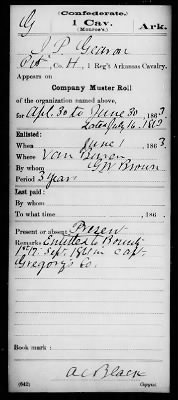 (Confederate.)
G 1 Cav. Ark.
(Monroe's.)
J. P. Gearon
Pvt, Co. H, 1 Reg't Arkansas Cavalry.
Appears on
Company Muster Roll
of the organization named above,
for Apl. 30 to June 30, 1863.
Dated July 16, 1863
Enlisted:
When June 1, 1863.
Where Van Buren
By whom G W Brown
Period 3 years
Last paid:
By whom
To what time , 186 .
Present or absent Present
Remarks: Entitled to Bounty
1st 12 Sept. 1861 in Capt.
Gregory's Co.
Book mark:
A C Black
(642) Copyist.